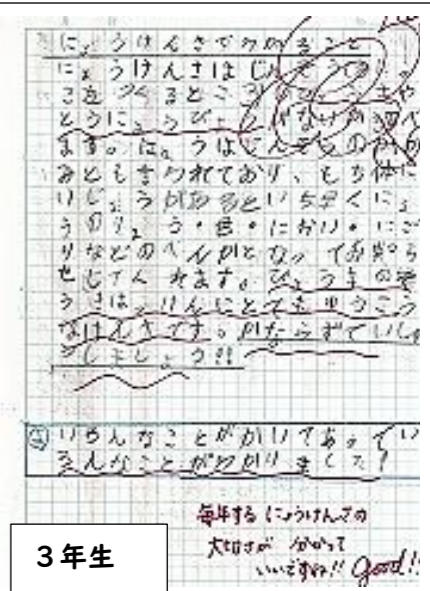 にょうけんさでわかること
にょうけんさはじんぞう
こをつくるところの や
とうにょうびょうがないか べ
ます。にょうはじんぞうのか
みともきわれており、もち体に
いじょうがあるといち早くにょ
うのりょう・色・におい・にご
りなどのへんかとなってお知ら
せしてくれます。びょうきの
うさは、けんにとてもゆうこう
なけんさです。かならずていしゅ
つしましょう!!
いろんなことがかいてあってい
ろんなことがわかりました!
毎年するにょうけんさの
大切さが わかって
いいですね!! Good!!
3年生